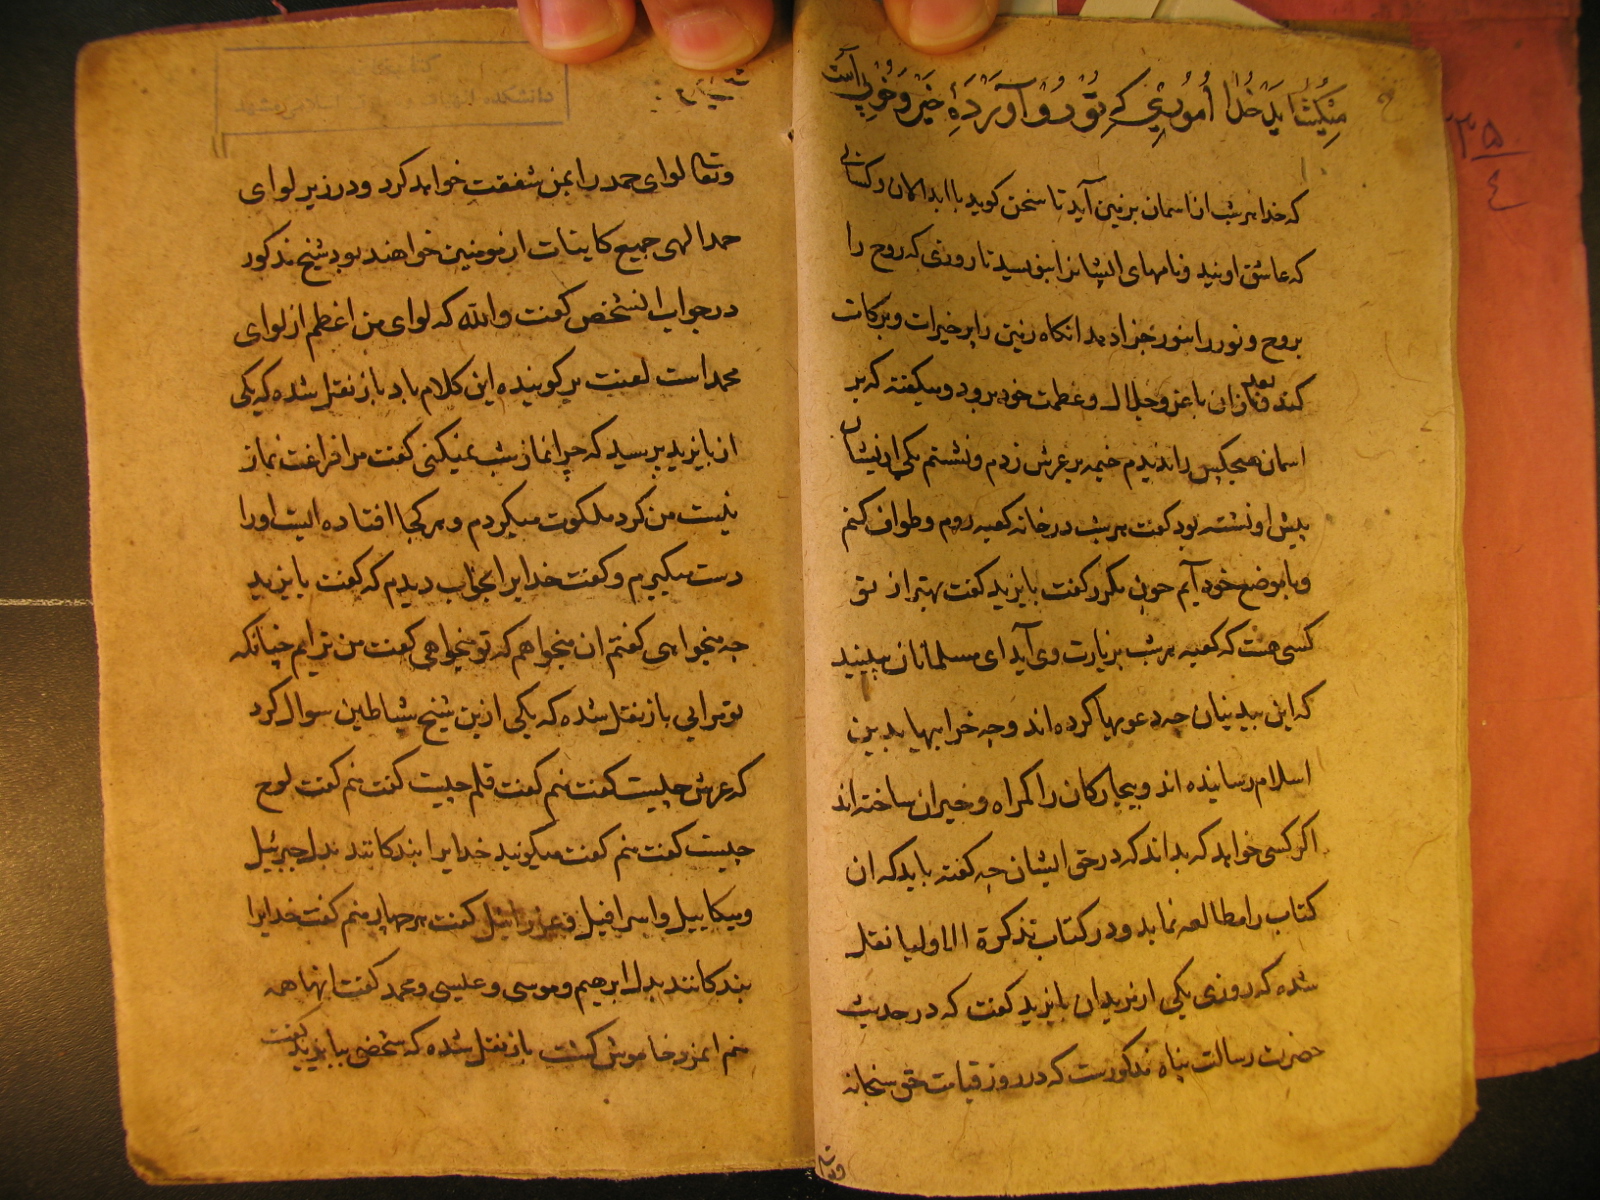 میکشاید خدا اموری که تو رو آورده خیر و خوبی است
که خدا هر شب از اسمان بر زمین آید تا سخن کوید با ابدالان و کسانی
که عاشق اویند و نامهای ایشانرا بنویسید تا روزی که روح را
بروح و نور را بنور جزا دهد انکاه زمین را پر خیرات و برکات
کند و بعد ازان با عز و جلال و عظمت خود برود و میکفته که بر
اسمان هیچکس را ندیدم خیمه بر عرش زدم و نشستم یکی از ایشان
پیش او نشسته بود کفت هر شب در خانه کعبه روم و طواف کنم
و با موضع خود آیم چون مکرر کفت بایزید کفت بهتر از تو
کسی هست که کعبه هر شب بزیارت وی آید ای مسلمانان ببینید
که این بیدینان چه دعویها کرده اند و چه خرابیها بدین
اسلام رسانیده اند و بیچارکان را کمراه و حیران ساخته اند
اکر کسی خواهد که بداند که در حق ایشان چه کفته باید که ان
کتاب را مطالعه نماید و در کتاب تذکرة الاولیا نقل
شده که روزی یکی از مریدان بایزید کفت که در حدیث
حضرت رسالت پناه مذکورست که در روز قیامت حق سبحانه
وتعا
وتعا لوای حمد را بمن شفقت خواهد کرد و در زیر لوای
حمد الهی جمیع کاینات از مومنین خواهند بود شیخ مذکور
در جواب انشخص کفت والله که لوای من اعظم از لوای
محمد است لعنت بر کوینده این کلام باد باز نقل شده که یکی
از بایزید پرسید که چرا نماز شب نمیکنی کفت مرا فراغت نماز
نیست من کرد ملکوت میکردم و هر کجا افتاده ایست او را
دست میکیرم و کفت خدایرا بخواب دیدم که کفت بایزید
چه میخواهی کفتم ان میخواهم که تو میخواهی کفت من ترایم چنانکه
تو مرایی باز نقل شده که یکی ازین شیخ شیاطین سوال کرد
که عرش چیست کفت منم کفت قلم چیست کفت منم کفت لوح
چیست کفت منم کفت میکویند خدایرا بندکانند بدل جبرئیل
و میکاییل و اسرافیل و عزرائیل کفت هر چهار منم کفت خدایرا
بندکانند بدل ابرهیم و موسی و عیسی و محمد کفت اینها همه
منم انمرد خاموش کشت باز نقل شده که شخصی ببایزید کفت